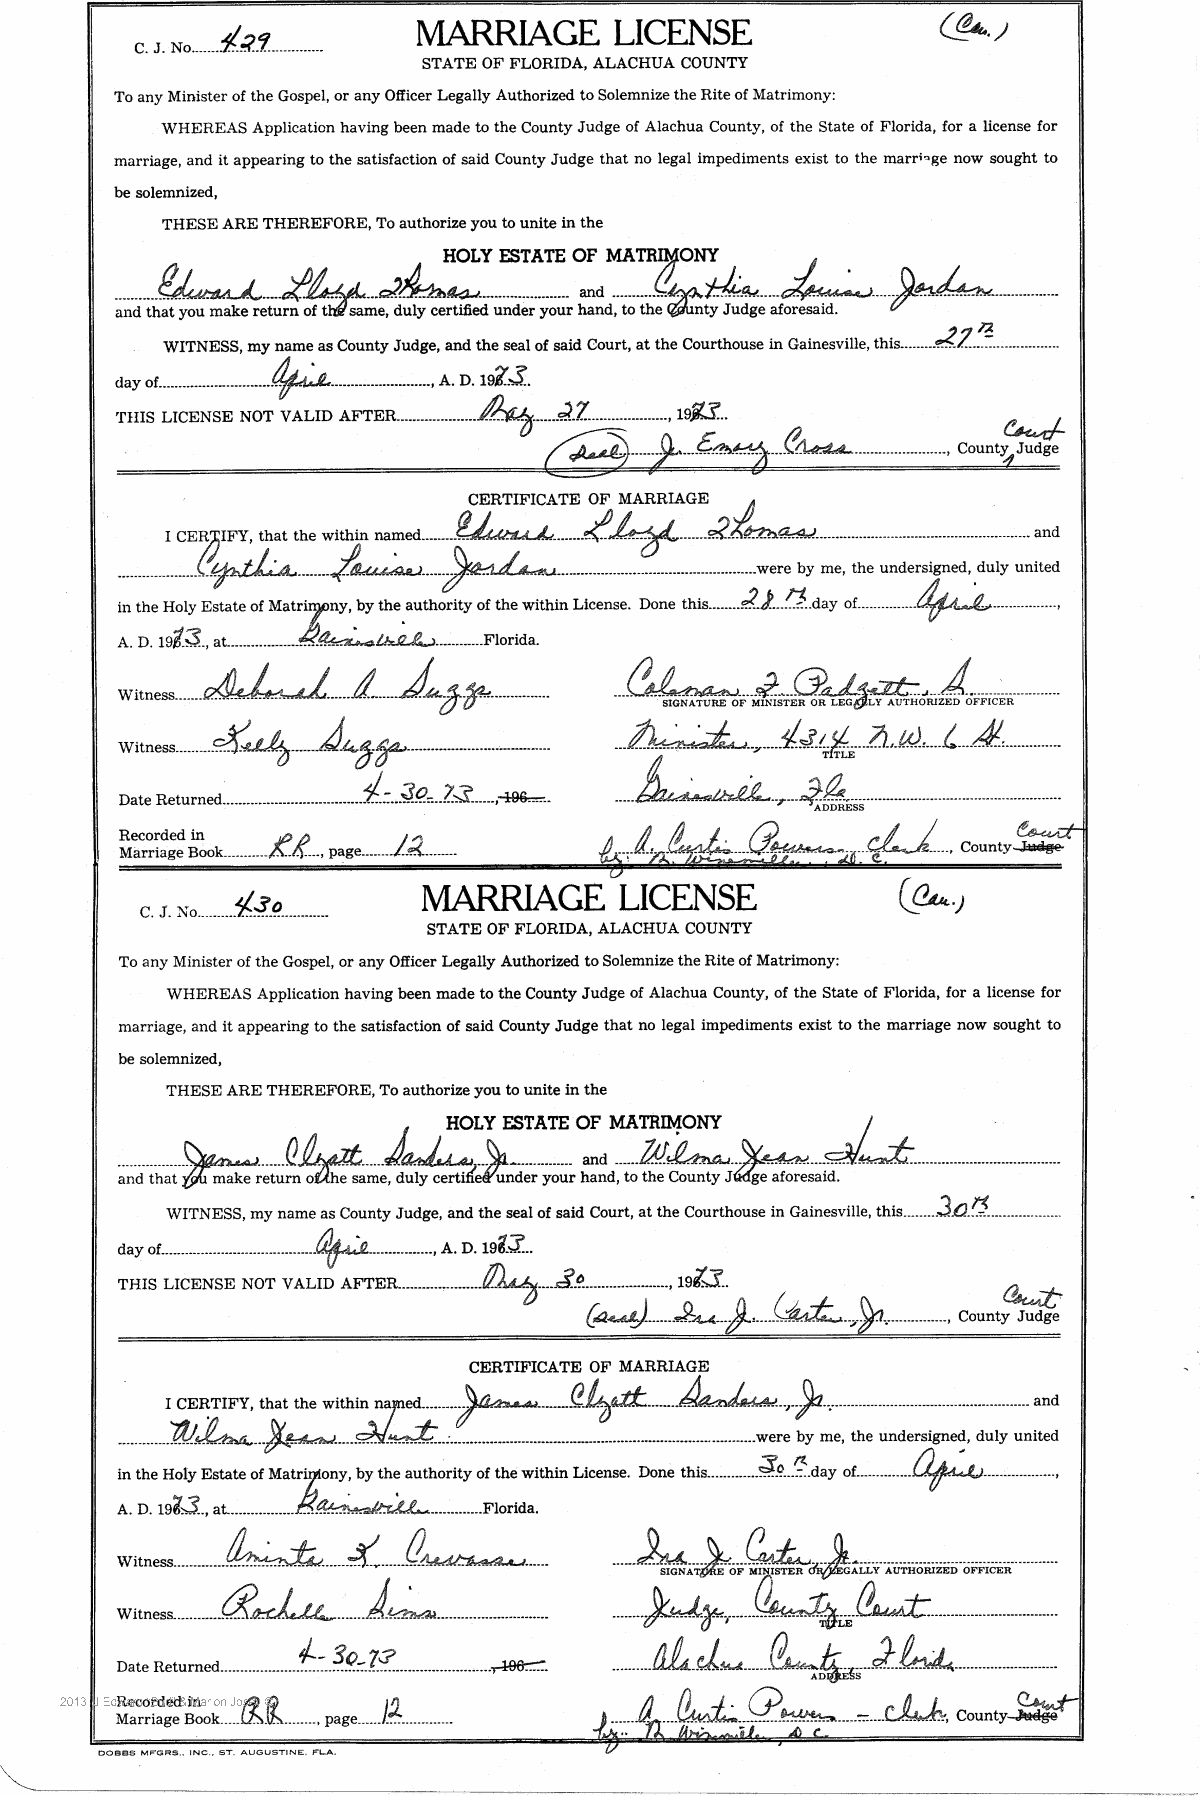 C. J. No. 429
MARRIAGE LICENSE
(Cau.)
STATE OF FLORIDA, ALACHUA COUNTY
To any Minister of the Gospel, or any Officer Legally Authorized to Solemnize the Rite of Matrimony:
WHEREAS Application having been made to the County Judge of Alachua County, of the State of Florida, for a license for
marriage, and it appearing to the satisfaction of said County Judge that no legal impediments exist to the marriage now sought to
be solemnized,
THESE ARE THEREFORE, To authorize you to unite in the
HOLY ESTATE OF MATRIMONY
Edward Lloyd Thomas and Cynthia Louise Jordan
and that you make return of the same, duly certified under your hand, to the County Judge aforesaid.
WITNESS, my name as County Judge, and the seal of said Court, at the Courthouse in Gainesville, this 27th
day of April, A. D. 1973.
THIS LICENSE NOT VALID AFTER May 27, 1973.
(seal) J. Emory Cross, County Court Judge
CERTIFICATE OF MARRIAGE
I CERTIFY, that the within named Edward Lloyd Thomas and
Cynthia Louise Jordan were by me, the undersigned, duly united
in the Holy Estate of Matrimony, by the authority of the within License. Done this 28th day of April,
A. D. 1973, at Gainesville Florida.
Witness Deborah A Suggs Coleman F Padgett, S.
SIGNATURE OF MINISTER OR LEGALLY AUTHORIZED OFFICER
Witness Kelly Suggs Minister, 4314 N.W. 6 St.
TITLE
Date Returned 4-30-73, 196 Gainesville, Fla
ADDRESS
Recorded in
Marriage Book RR, page 12 A. Curtis Powers clerk, County Judge Court
by: D. C.
C. J. No. 430
MARRIAGE LICENSE
(Cau.)
STATE OF FLORIDA, ALACHUA COUNTY
To any Minister of the Gospel, or any Officer Legally Authorized to Solemnize the Rite of Matrimony:
WHEREAS Application having been made to the County Judge of Alachua County, of the State of Florida, for a license for
marriage, and it appearing to the satisfaction of said County Judge that no legal impediments exist to the marriage now sought to
be solemnized,
THESE ARE THEREFORE, To authorize you to unite in the
HOLY ESTATE OF MATRIMONY
James Clyatt Sanders, Jr. and Wilma Jean Hunt
and that you make return of the same, duly certified under your hand, to the County Judge aforesaid.
WITNESS, my name as County Judge, and the seal of said Court, at the Courthouse in Gainesville, this 30th
day of April, A. D. 1973.
THIS LICENSE NOT VALID AFTER May 30, 1973.
(seal) Ira J. Carter, Jr., County Court Judge
CERTIFICATE OF MARRIAGE
I CERTIFY, that the within named James Clyatt Sanders, Jr. and
Wilma Jean Hunt were by me, the undersigned, duly united
in the Holy Estate of Matrimony, by the authority of the within License. Done this 30th day of April,
A. D. 1973, at Gainesville Florida.
Witness Aminta K. Crevasse Ira J Carter, Jr.
SIGNATURE OF MINISTER OR LEGALLY AUTHORIZED OFFICER
Witness Rochelle Sims Judge, County Court
TITLE
Date Returned 4-30-73, 196 Alachua County, Florida
ADDRESS
Recorded in
Marriage Book RR, page 12 A Curtis Powers - clerk, County Judge Court
by: D C.
DOBBS MFGRS., INC., ST. AUGUSTINE, FLA.
2013